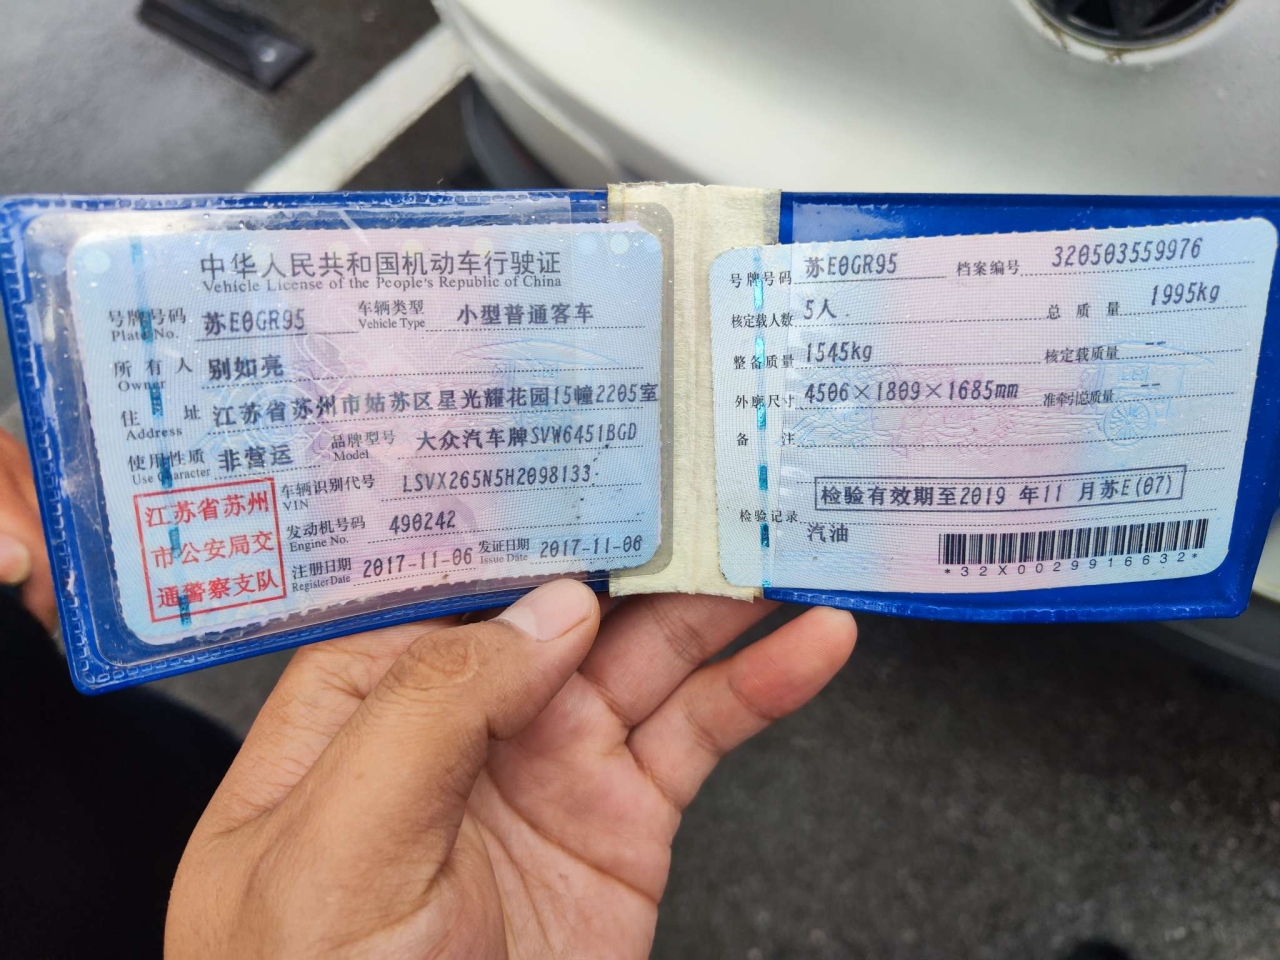 中华人民共和国机动车行驶证
Vehicle License of the People's Republic of China
号牌号码 苏E0GR95 车辆类型 小型普通客车
Plate No. Vehicle Type
所有人 别如亮
Owner
住址 江苏省苏州市姑苏区星光耀花园15幢2205室
Address
使用性质 非营运 品牌型号 大众汽车牌SVW6451BGD
Use Character Model
江苏省苏州
市公安局交
通警察支队
车辆识别代号 LSVX265N5H2098133
VIN
发动机号码 490242
Engine No.
注册日期 2017-11-06 发证日期 2017-11-06
Register Date Issue Date
号牌号码 苏E0GR95 档案编号 320503559976
核定载人数 5人 总质量 1995kg
整备质量 1545kg 核定载质量 --
外廓尺寸 4506×1809×1685mm 准牵引总质量 --
备注
检验有效期至2019 年11 月苏E(07)
检验记录
汽油
*32X0029916632*